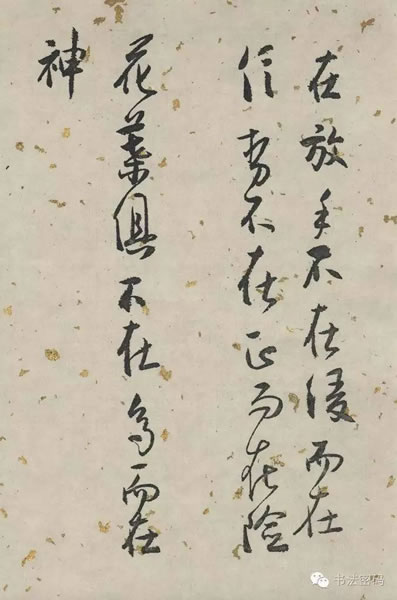 在放手不在而在
信势不在正而在险
花葉俱不在多而在
神
书法密码